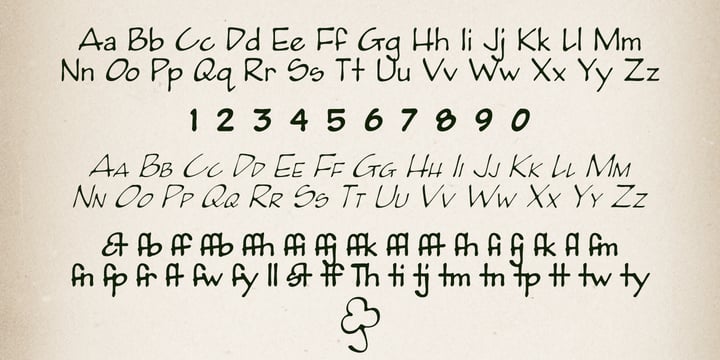 Aa Bb Cc Dd Ee Ff Gg Hh Ii Jj Kk Ll Mm
Nn Oo Pp Qq Rr Ss Tt Uu Vv Ww Xx Yy Zz
1 2 3 4 5 6 7 8 9 0
AA BB CC DD EE FF GG HH II JJ KK LL MM
NN OO PP QQ RR SS TT UU VV WW XX YY ZZ
& fb ff ffb ffh ffi ffj ffk ffl fft fh fi fj fk fl fm
fn fp fr ft fw fy ll st tf Th ti tj tm tn tp tt tw ty